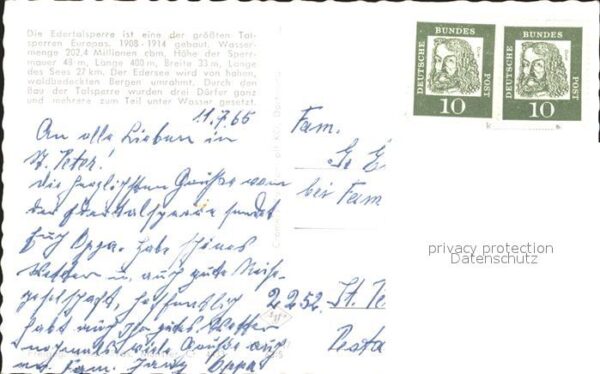 Die Edertalsperre ist eine der größten Tal-
sperren Europas. 1908-1914 gebaut. Wasser-
menge 202,4 Millionen cbm, Höhe der Sperr-
mauer 48 m, Länge 400 m, Breite 33 m, Länge
des Sees 27 km. Der Edersee wird von hohen,
waldbedeckten Bergen umrahmt. Durch den
Bau der Talsperre wurden drei Dörfer ganz
und mehrere zum Teil unter Wasser gesetzt.
DEUTSCHE BUNDES POST
10
DEUTSCHE BUNDES POST
10
11.7.65
An alle Lieben in
St. Peter!
Die herzlichsten Grüße von
der Edertalsperre sendet
Euch Oppa. Habe schönes
Wetter u. auch gute Reise-
gesellschaft, hoffentlich
habt auch Ihr gutes Wetter
nochmals viele Grüße auch
an Fam. Oppa
Fam.
bei Fam
2252. St. Pe
privacy protection
Datenschutz